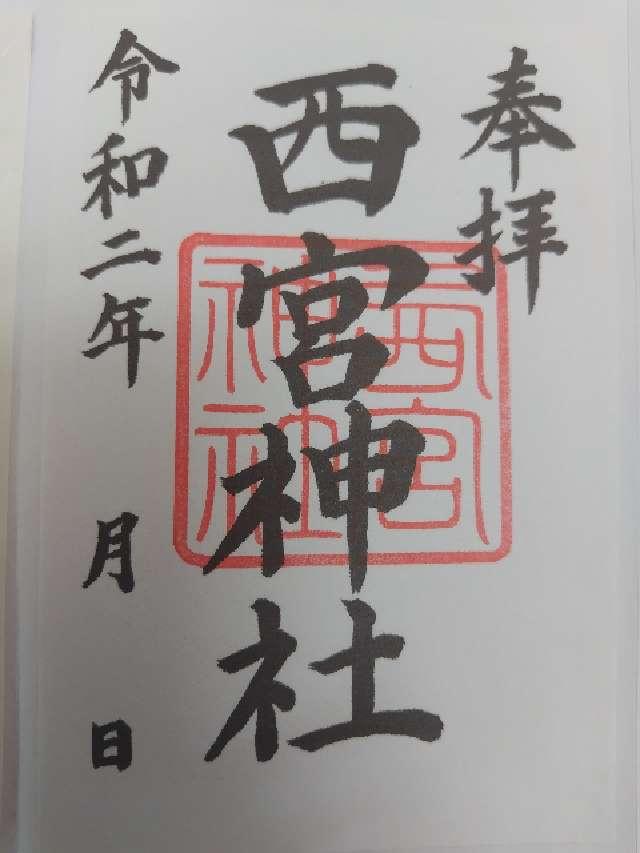 奉拝
西宮神社
西宮神社
令和二年 月 日